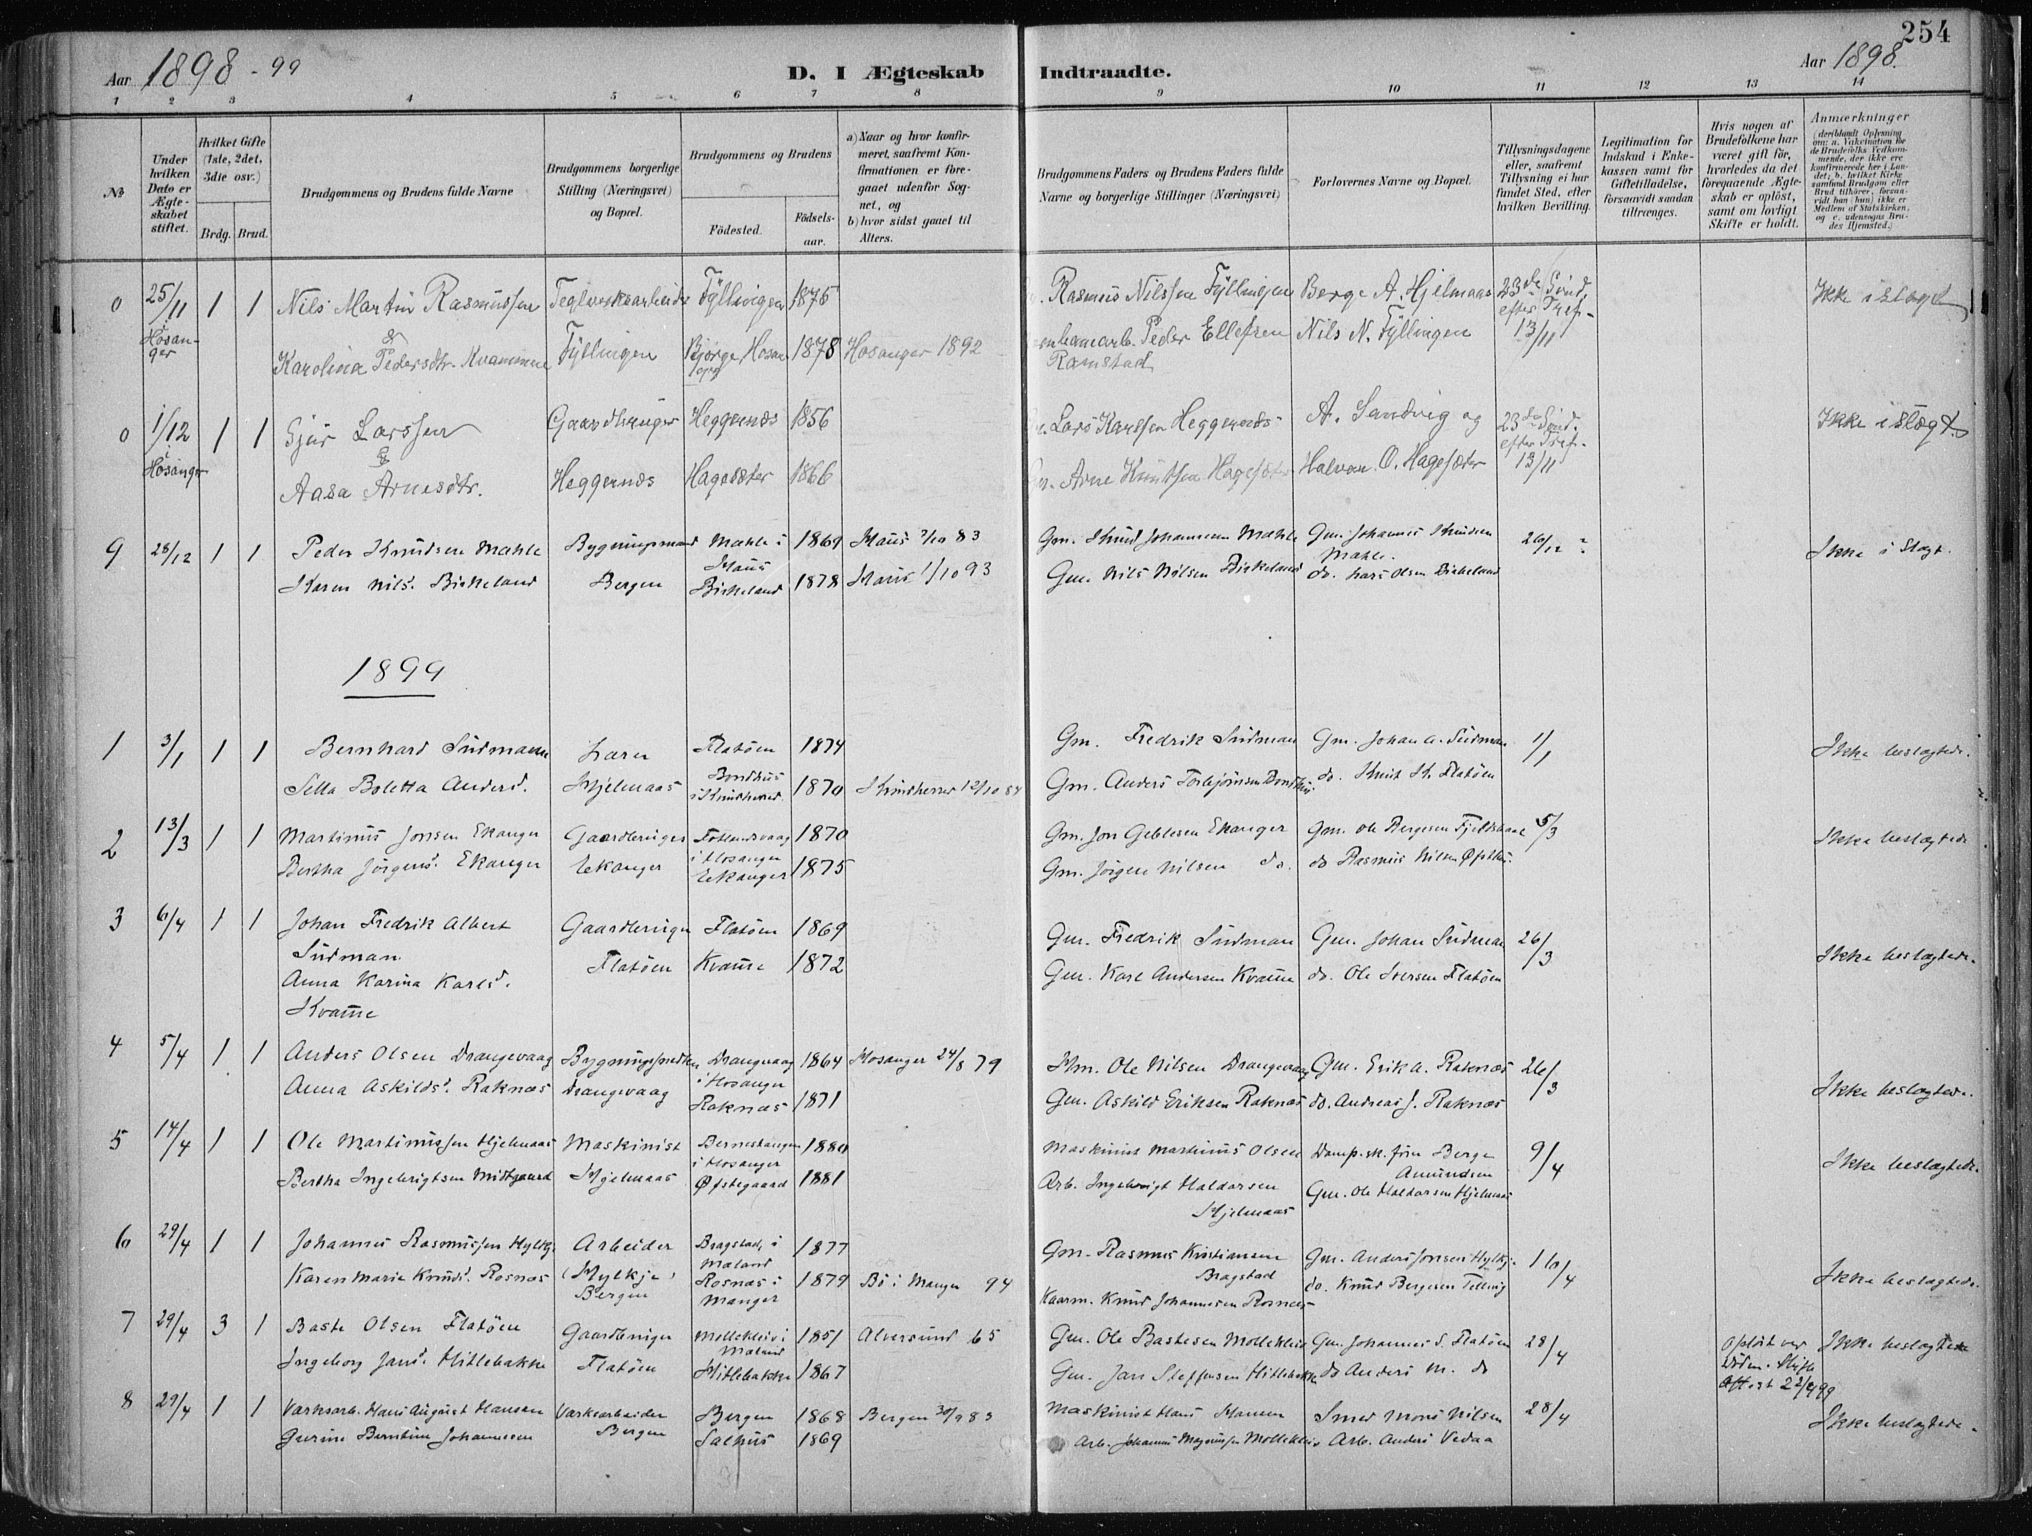 254
Aar 1898 - 99
D. I Ægteskab Indtraadte.
Aar 1898.
1 2 3 4 5 6 7 8 9 10 11 12 13 14
No
Under hvilken Dato er Ægteskabet stiftet.
Hvilket Gifte (1ste, 2det, 3die osv.)
Brdg. Brud.
Brudgommens og Brudens fulde Navne
Brudgommens borgerlige Stilling (Næringsvei) og Bopæl.
Brudgommens og Brudens
Födested.
Födselsaar.
a) Naar og hvor konfirmeret, saafremt Konfirmationen er foregaaet udenfor Sognet, og
b) hvor sidst gaaet til Alters.
Brudgommens Faders og Brudens Faders fulde Navne og borgerlige Stillinger (Næringsvei)
Forlovernes Navne og Bopæl.
Tillysningsdagene eller, saafremt Tillysning ei har fundet Sted, efter hvilken Bevilling.
Legitimation for Indskud i Enkekassen samt for Giftetilladelse, forsaavidt saadan tiltrænges.
Hvis nogen af Brudefolkene har været gift för, hvorledes da det foregaaende Ægteskab er oplöst, samt om lovligt Skifte er holdt.
Anmærkninger (deriblandt Oplysning om: a. Vakcination for de Brudefolks Vedkommende, der ikke ere konfirmerede her i Landet; b. hvilket Kirkesamfund Brudgom eller Brud tilhörer, forsaavidt han (hun) ikke er Medlem af Statskirken, og c. udensogns Brudes Hjemsted.)
0 25/11 1 1 Nils Martin Rasmussen Teglverksarbeider Fyllingen 1876 Rasmus Nilssen Fyllingen Berge A. Hjelmaas 23de Sønd. efter Tref. 13/11 Ikke i slægt
Hosanger & Karolina Pedersdtr. Kvamme Fyllingen Bjørge Hosan 1878 Hosanger 1892 Peder Ellefsen Ramstad Nils N. Fyllingen
0 1/12 1 1 Sjur Larssen Gaardbruger Heggernæs 1856 Lars Karlsen Heggernæs A. Sandvig og 23de Sønd. efter Tref. 13/11 Ikke i slægt.
Hosanger & Aasa Arnesdtr. Heggernæs Hagesæter 1866 Arne Knutsen Hagesæter Halvor O. Hagesæter
9 28/12 1 1 Peder Knudsen Mahle Bygningsmand Mahle i Haus 1869 Haus 7/10 83 Gm. Knud Johannesen Mahle Gm. Johannes Knudsen Mahle. 26/12 ? Ikke i Slægt.
Karen Nilsd. Birkeland Bergen Birkeland 1878 Haus 1/10 93 Gm. Nils Nilsen Birkeland do. Lars Olsen Birkeland
1899
1 3/1 1 1 Bernhard Sudmann Lærer Flatøen 1874 Gm. Fredrik Sudman Gm. Johan A. Sudman 1/1 Ikke beslægtede.
Sella Boletta Andersd. Hjelmaas Bondhus i Kvindherred 1870 Kvindherred 12/10 84 Gm. Anders Torbjørnsen Bondhus do. Knut K. Flatøen
2 13/3 1 1 Martinus Jonsen Ekanger Gaardbruger Fotlandsvaag i Hosanger 1870 Gm. Jon Geblesen Ekanger Gm. Ole Bergesen Fjeldskaal 5/3 Ikke beslægtede
Bertha Jørgensd. Ekanger Eekanger Eekanger 1875 Gm. Jörgen Nilsen do. do Rasmus Nilsen Øpsthus
3 6/4 1 1 Johan Fredrik Albert Sudman Gaardbruger Flatøen 1869 Gm. Fredrik Sudman Gm. Johan Sudman 26/3 Ikke beslægtede.
Anna Karina Karlsd. Kvamme Flatøen Kvamme 1872 Gm. Karl Andersen Kvamme do. Ole Iversen Flatøen
4 5/4 1 1 Anders Olsen Drangevaag Bygningssnedker Drangevaag i Hosanger 1864 Hosanger 24/8 79 Hm. Ole Nilsen Drangevaag Gm. Erik A. Raknæs 26/3 Ikke beslægtede.
Anna Askildsd. Raknæs Drangevaag Raknæs 1871 Gm. Askild Eriksen Raknæs do. Andreas J. Raknæs
5 14/4 1 1 Ole Martinussen Hjelmaas Maskinist Bernestangen i Hosanger 1880 Maskinist Martinus Olsen Berge Amundsen 9/4 Ikke beslægtede.
Bertha Ingebrigtsen Midtgaard Hjelmaas Øfstegaard 1881 Arb. Ingebrigt Haldorsen Hjelmaas Gm. Ole Haldorsen Hjelmaas
6 29/4 1 1 Johannes Rasmussen Hylkje Arbeider Bragstad, i Mæland 1877 Gm. Rasmus Kristiansen Bragstad Gm. Anders Jonsen Hylkje 16/4 Ikke beslægtede.
Karen Marie Knudsd. Rosnæs (Hylkje) Bergen Rosnæs i Manger 1879 Bø i Manger 94 Kaarm. Knud Johannesen Rosnæs do. Knud Bergesen Telling
7 29/4 3 1 Baste Olsen Flatøen Gaardbruger Mollekleiv i Mæland 1851 Alversund 65 Gm. Ole Bastesen Mollekleiv Gm. Johannes S. Flatøen 28/4 Opløst ved Døden. Skifte Attest 22/4 99 Ikke beslægtede
Ingeborg Jansd. Hitlebakke Flatøen Hitlebakke 1867 Gm. Jan Steffensen Hitlebakke do Anders M. do
8 29/4 1 1 Værksarb. Hans August Hansen Værksarbeider Bergen 1868 Bergen 30/9 83 Maskinist Hans Hansen Smed Mons Nilsen 28/4 Ikke beslægtede.
Gurine Berntine Johannesen Bergen Salhus 1869 Arb. Johannes Magnussen Mollekleiv Arb. Anders Vedaa